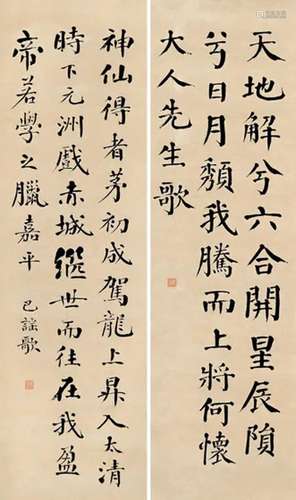 天地解兮六合開星辰隕
兮日月頽我騰而上將何懷
大人先生歌
神仙得者茅初成駕龍上昇入太清
時下元洲戲赤城繼世而往在我盈
帝若學之臘嘉平
巴謡歌